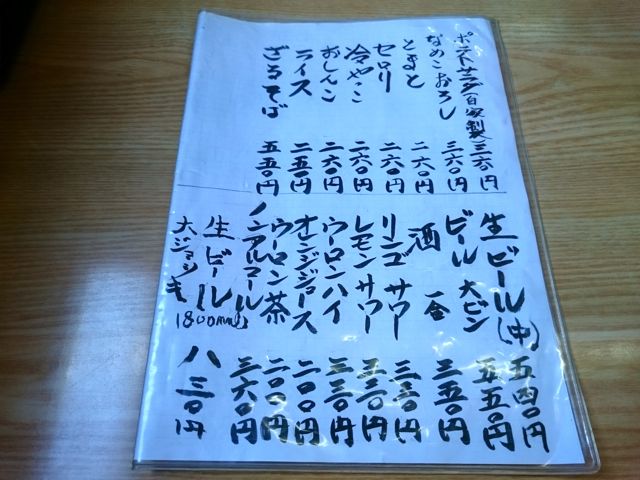 ポテトサラダ(自家製) 三六〇円
なめこおろし 三六〇円
とまと 二六〇円
セロリ 二六〇円
冷やっこ 二六〇円
おしんこ 二六〇円
ライス 二五〇円
ざるそば 五五〇円
生ビール(中) 五四〇円
ビール大ビン 五五〇円
酒 一合 三五〇円
リンゴサワー 三三〇円
レモンサワー 三三〇円
ウーロンハイ 三三〇円
オレンジジュース 二〇〇円
ウーロン茶 二〇〇円
ノンアルコール 三六〇円
生ビール 大ジョッキ(800mm) 八三〇円